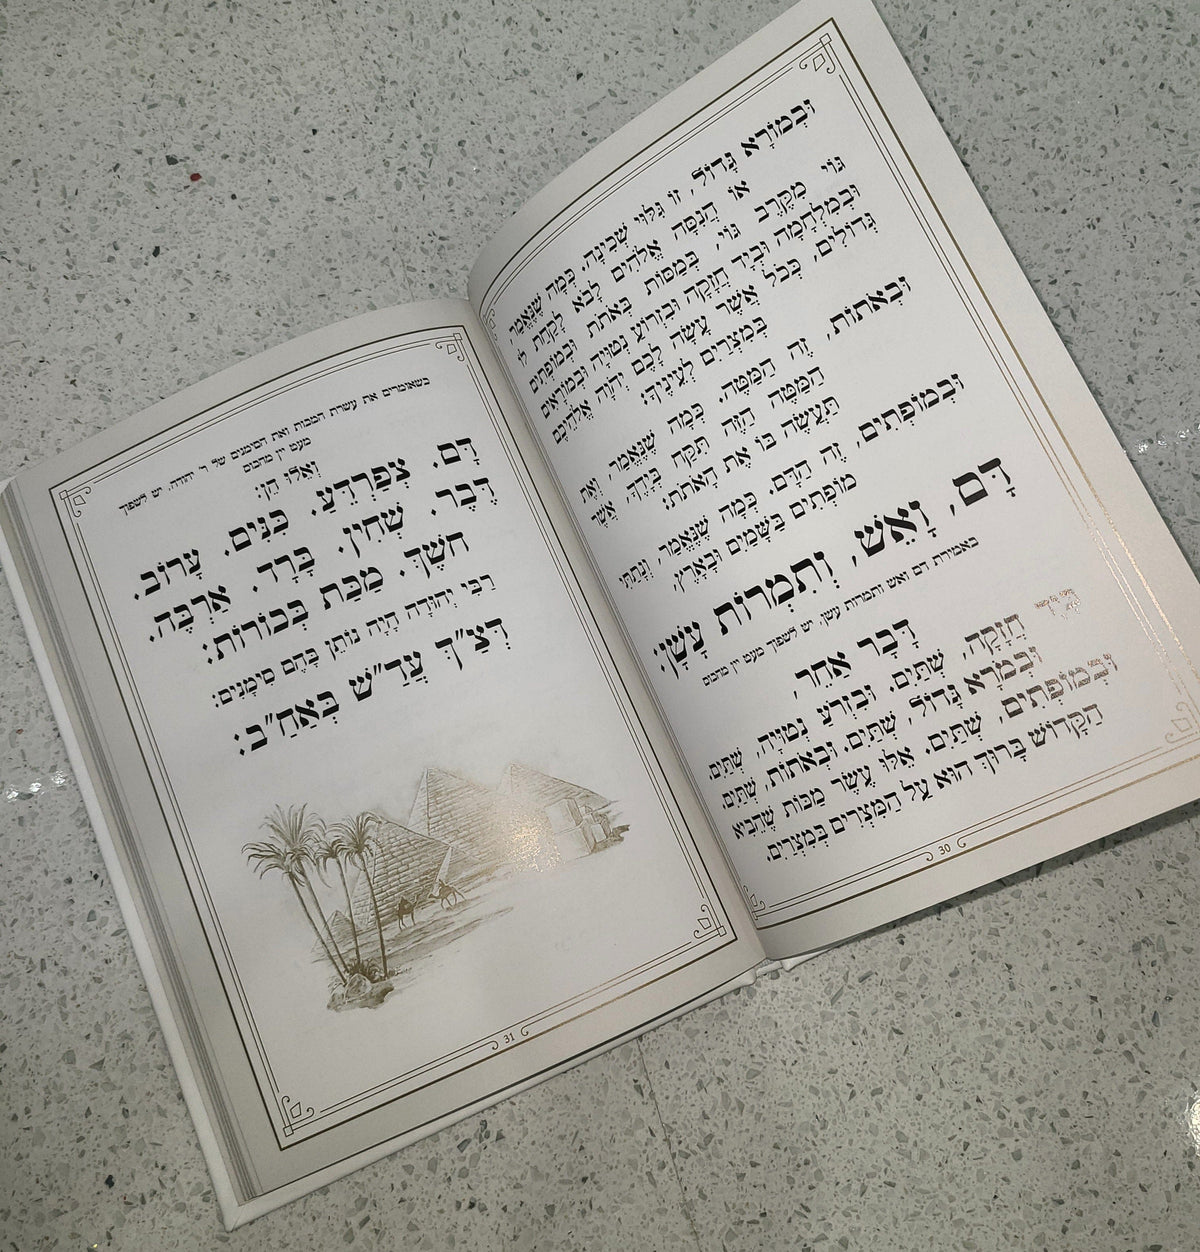 וּבְמוֹרָא גָּדוֹל, זוֹ גִּלּוּי שְׁכִינָה. כְּמָה שֶׁנֶּאֱמַר,
אוֹ הֲנִסָּה אֱלֹהִים לָבֹא לָקַחַת לוֹ
גּוֹי מִקֶּרֶב גּוֹי, בְּמַסּוֹת בְּאֹתֹת וּבְמוֹפְתִים
וּבְמִלְחָמָה וּבְיָד חֲזָקָה וּבִזְרוֹעַ נְטוּיָה וּבְמוֹרָאִים
גְּדוֹלִים, כְּכֹל אֲשֶׁר עָשָׂה לָכֶם יְהוָה אֱלֹהֵיכֶם
בְּמִצְרַיִם לְעֵינֶיךָ:
וּבְאֹתוֹת, זֶה הַמַּטֶּה. כְּמָה שֶׁנֶּאֱמַר, וְאֶת
הַמַּטֶּה הַזֶּה תִּקַּח בְּיָדֶךָ, אֲשֶׁר
תַּעֲשֶׂה בּוֹ אֶת הָאֹתֹת:
וּבְמוֹפְתִים, זֶה הַדָּם. כְּמָה שֶׁנֶּאֱמַר, וְנָתַתִּי
מוֹפְתִים בַּשָּׁמַיִם וּבָאָרֶץ,
דָּם, וָאֵשׁ, וְתִמְרוֹת עָשָׁן:
באמירת דם ואש ותמרות עשן, יש לשפוך מעט יין מהכוס
דָּבָר אַחֵר,
בְּיָד חֲזָקָה, שְׁתַּיִם. וּבִזְרֹעַ נְטוּיָה, שְׁתַּיִם.
וּבְמֹרָא גָּדוֹל, שְׁתַּיִם. וּבְאֹתוֹת, שְׁתַּיִם.
וּבְמוֹפְתִים, שְׁתַּיִם. אֵלּוּ עֶשֶׂר מַכּוֹת שֶׁהֵבִיא
הַקָּדוֹשׁ בָּרוּךְ הוּא עַל הַמִּצְרִים בְּמִצְרַיִם.
30
כשאומרים את עשרת המכות ואת הסימנים של ר' יהודה, יש לשפוך
מעט יין מהכוס
וְאֵלּוּ הֵן:
דָּם. צְפַרְדֵּעַ. כִּנִּים. עָרוֹב.
דֶּבֶר. שְׁחִין. בָּרָד. אַרְבֶּה.
חשֶׁךְ. מַכַּת בְּכוֹרוֹת:
רַבִּי יְהוּדָה הָיָה נוֹתֵן בָּהֶם סִימָנִים:
דְּצַ"ךְ עֲדַ"שׁ בְּאַחַ"ב:
31